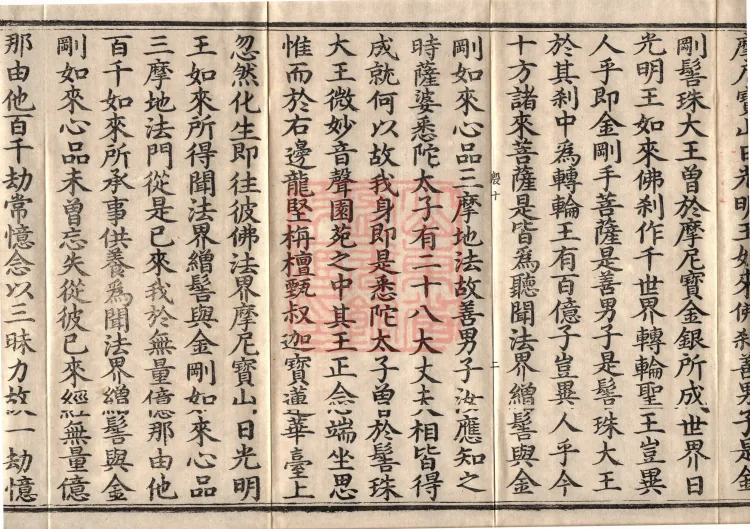 摩尼寶山日光明王如來佛刹善男子是金
剛髻珠大王曾於摩尼寶金銀所成世界日
光明王如來佛刹作千世界轉輪聖王豈異
人乎即金剛手菩薩是善男子是髻珠大王
於其刹中為轉輪王有百億子豈異人乎今
十方諸來菩薩是皆為聽聞法界繒髻與金
剛如來心品三摩地法故善男子汝應知之
時薩婆悉陀太子有二十八大丈夫相皆得
成就何以故我身即是悉陀太子曾於髻珠
大王微妙音聲園苑之中其王正念端坐思
惟而於右邊龍堅栴檀甄叔迦寶蓮華臺上
忽然化生即往彼佛法界摩尼寶山日光明
王如來所得聞法界繒髻與金剛如來心品
三摩地法門從是已來我於無量億那由他
百千如來所承事供養為聞法界繒髻與金
剛如來心品未曾忘失從彼已來經無量億
那由他百千劫常憶念以三昧力故一劫憶
十
二